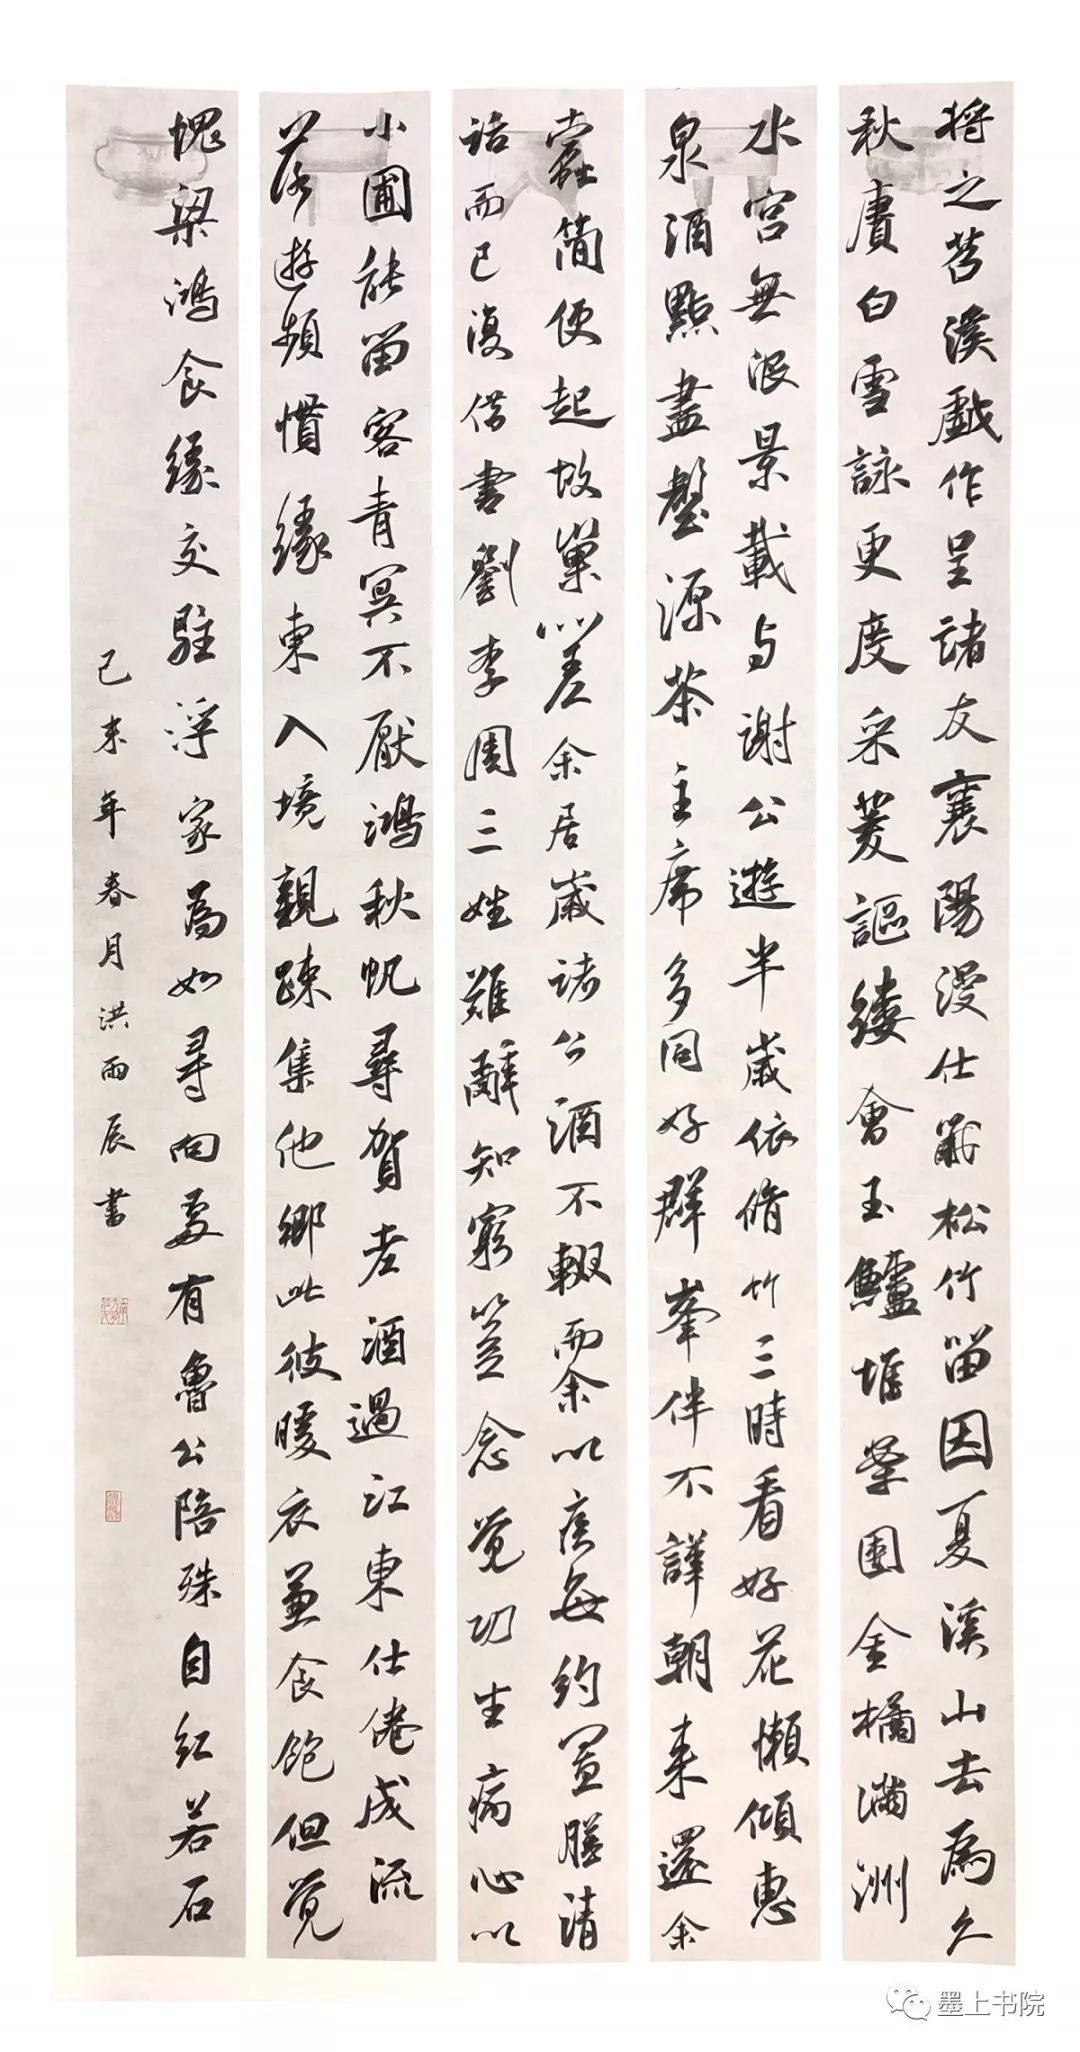 将之苕溪戲作呈諸友襄陽漫仕黻松竹留因夏溪山去為久
秋賡白雪詠更度采菱謳縷會玉鱸堆案團金橘滿洲
水宮無限景載与謝公遊半歲依脩竹三時看好花懶傾惠
泉酒點盡壑源茶主席多同好群峯伴不譁朝來還余
蠹簡便起故巢嗟余居歲諸公酒不輟而余以疾每約置膳清
話而已復借書劉李周三姓難辭知窮簦念覚功生病心以
小圃能留客青冥不厭鴻秋帆尋賀老酒過江東仕倦成流
落遊頻慣緣東入境親疎集他鄉此彼暖衣兼食飽但覚
愧梁鴻食緣交駐浮家為如尋向處有魯公陪殊自紅若石
己未年春月洪雨辰書
墨上书院